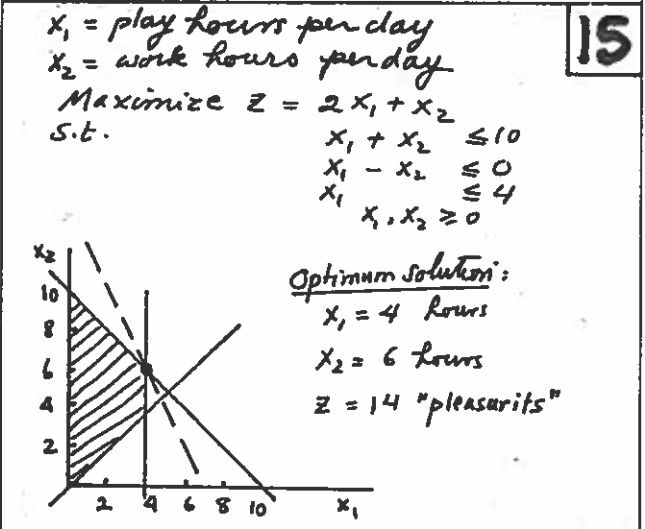 15
x₁ = play hours per day
x₂ = work hours per day
Maximize Z = 2x₁ + x₂
s.t.
x₁ + x₂ ≤ 10
x₁ - x₂ ≤ 0
x₁ ≤ 4
x₁, x₂ ≥ 0
x₂
10
8
6
4
2
2 4 6 8 10 x₁
Optimum solution:
x₁ = 4 hours
x₂ = 6 hours
Z = 14 "pleasurits"